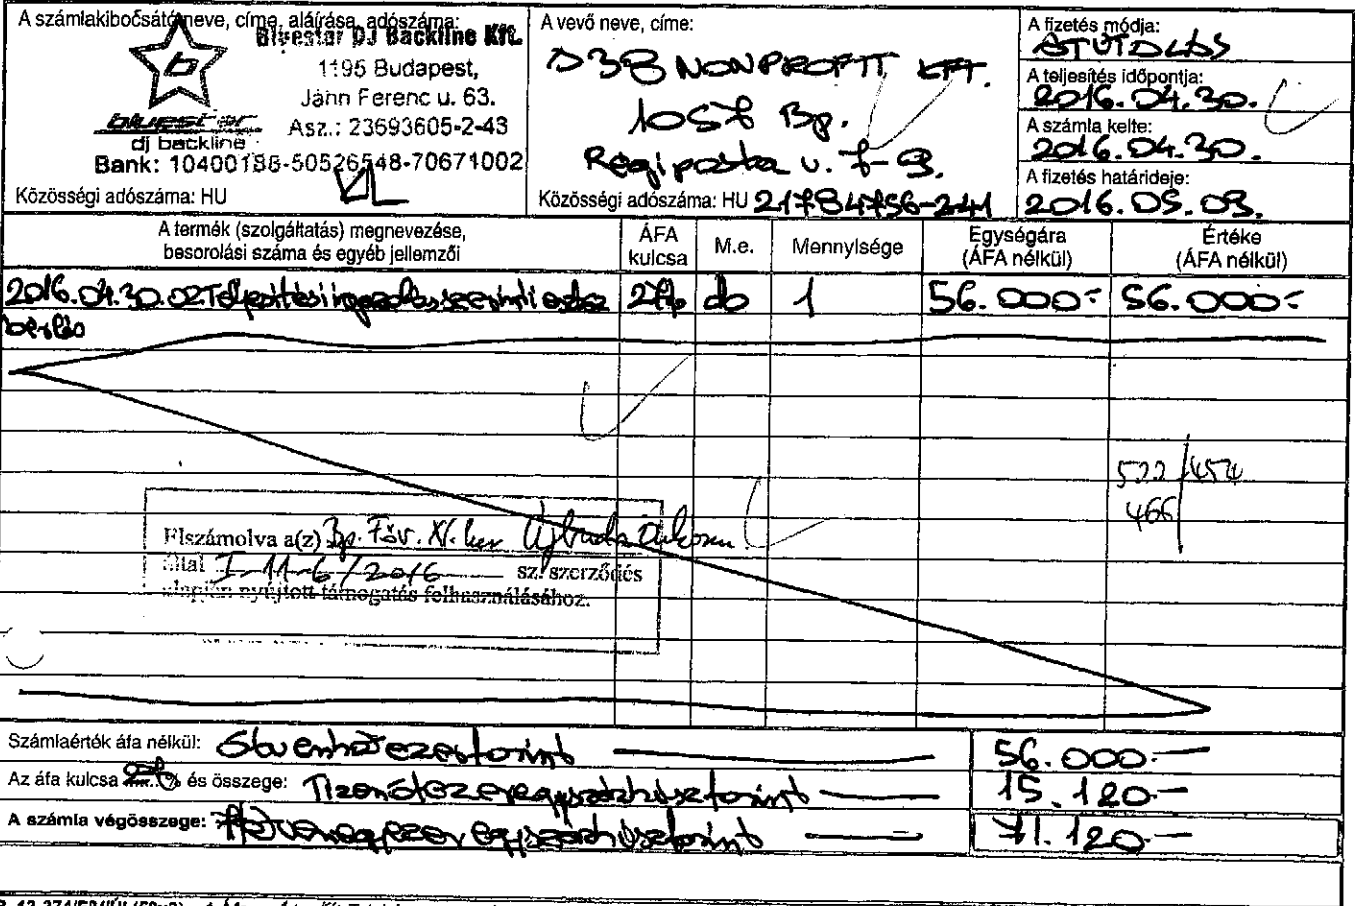 A számlakibocsátó neve, címe, aláírása, adószáma:
Bluestar DJ Backline Kft.
1195 Budapest,
Jahn Ferenc u. 63.
Asz.: 23693605-2-43
b
bluestar
dj backline
Bank: 10400188-50526548-70671002
Közösségi adószáma: HU
A vevő neve, címe:
D3B NONPROFIT KFT.
1057 Bp.
Régiposta u. 7-9.
Közösségi adószáma: HU 21784756-241
A fizetés módja:
ÁTUTALÁS
A teljesítés időpontja:
2016.04.30.
A számla kelte:
2016.04.30.
A fizetés határideje:
2016.05.03.
A termék (szolgáltatás) megnevezése,
besorolási száma és egyéb jellemzői
ÁFA
kulcsa
M.e.
Mennyisége
Egységára
(ÁFA nélkül)
Értéke
(ÁFA nélkül)
2016.04.30.02. Teljesítési igazolás szerinti eszköz 27% db 1 56.000.- 56.000.-
bérlés
522/454
466
Elszámolva a(z) Bp. Főv. XI. ker Újbuda Önkorm
által I-11-6/2016 sz. szerződés
alapján nyújtott támogatás felhasználásához.
Számlaérték áfa nélkül: Ötvenhatezerforint 56.000.-
Az áfa kulcsa 27% és összege: Tizenötezeregyszázhúszforint 15.120.-
A számla végösszege: Hetvenegyezeregyszázhúszforint 71.120.-